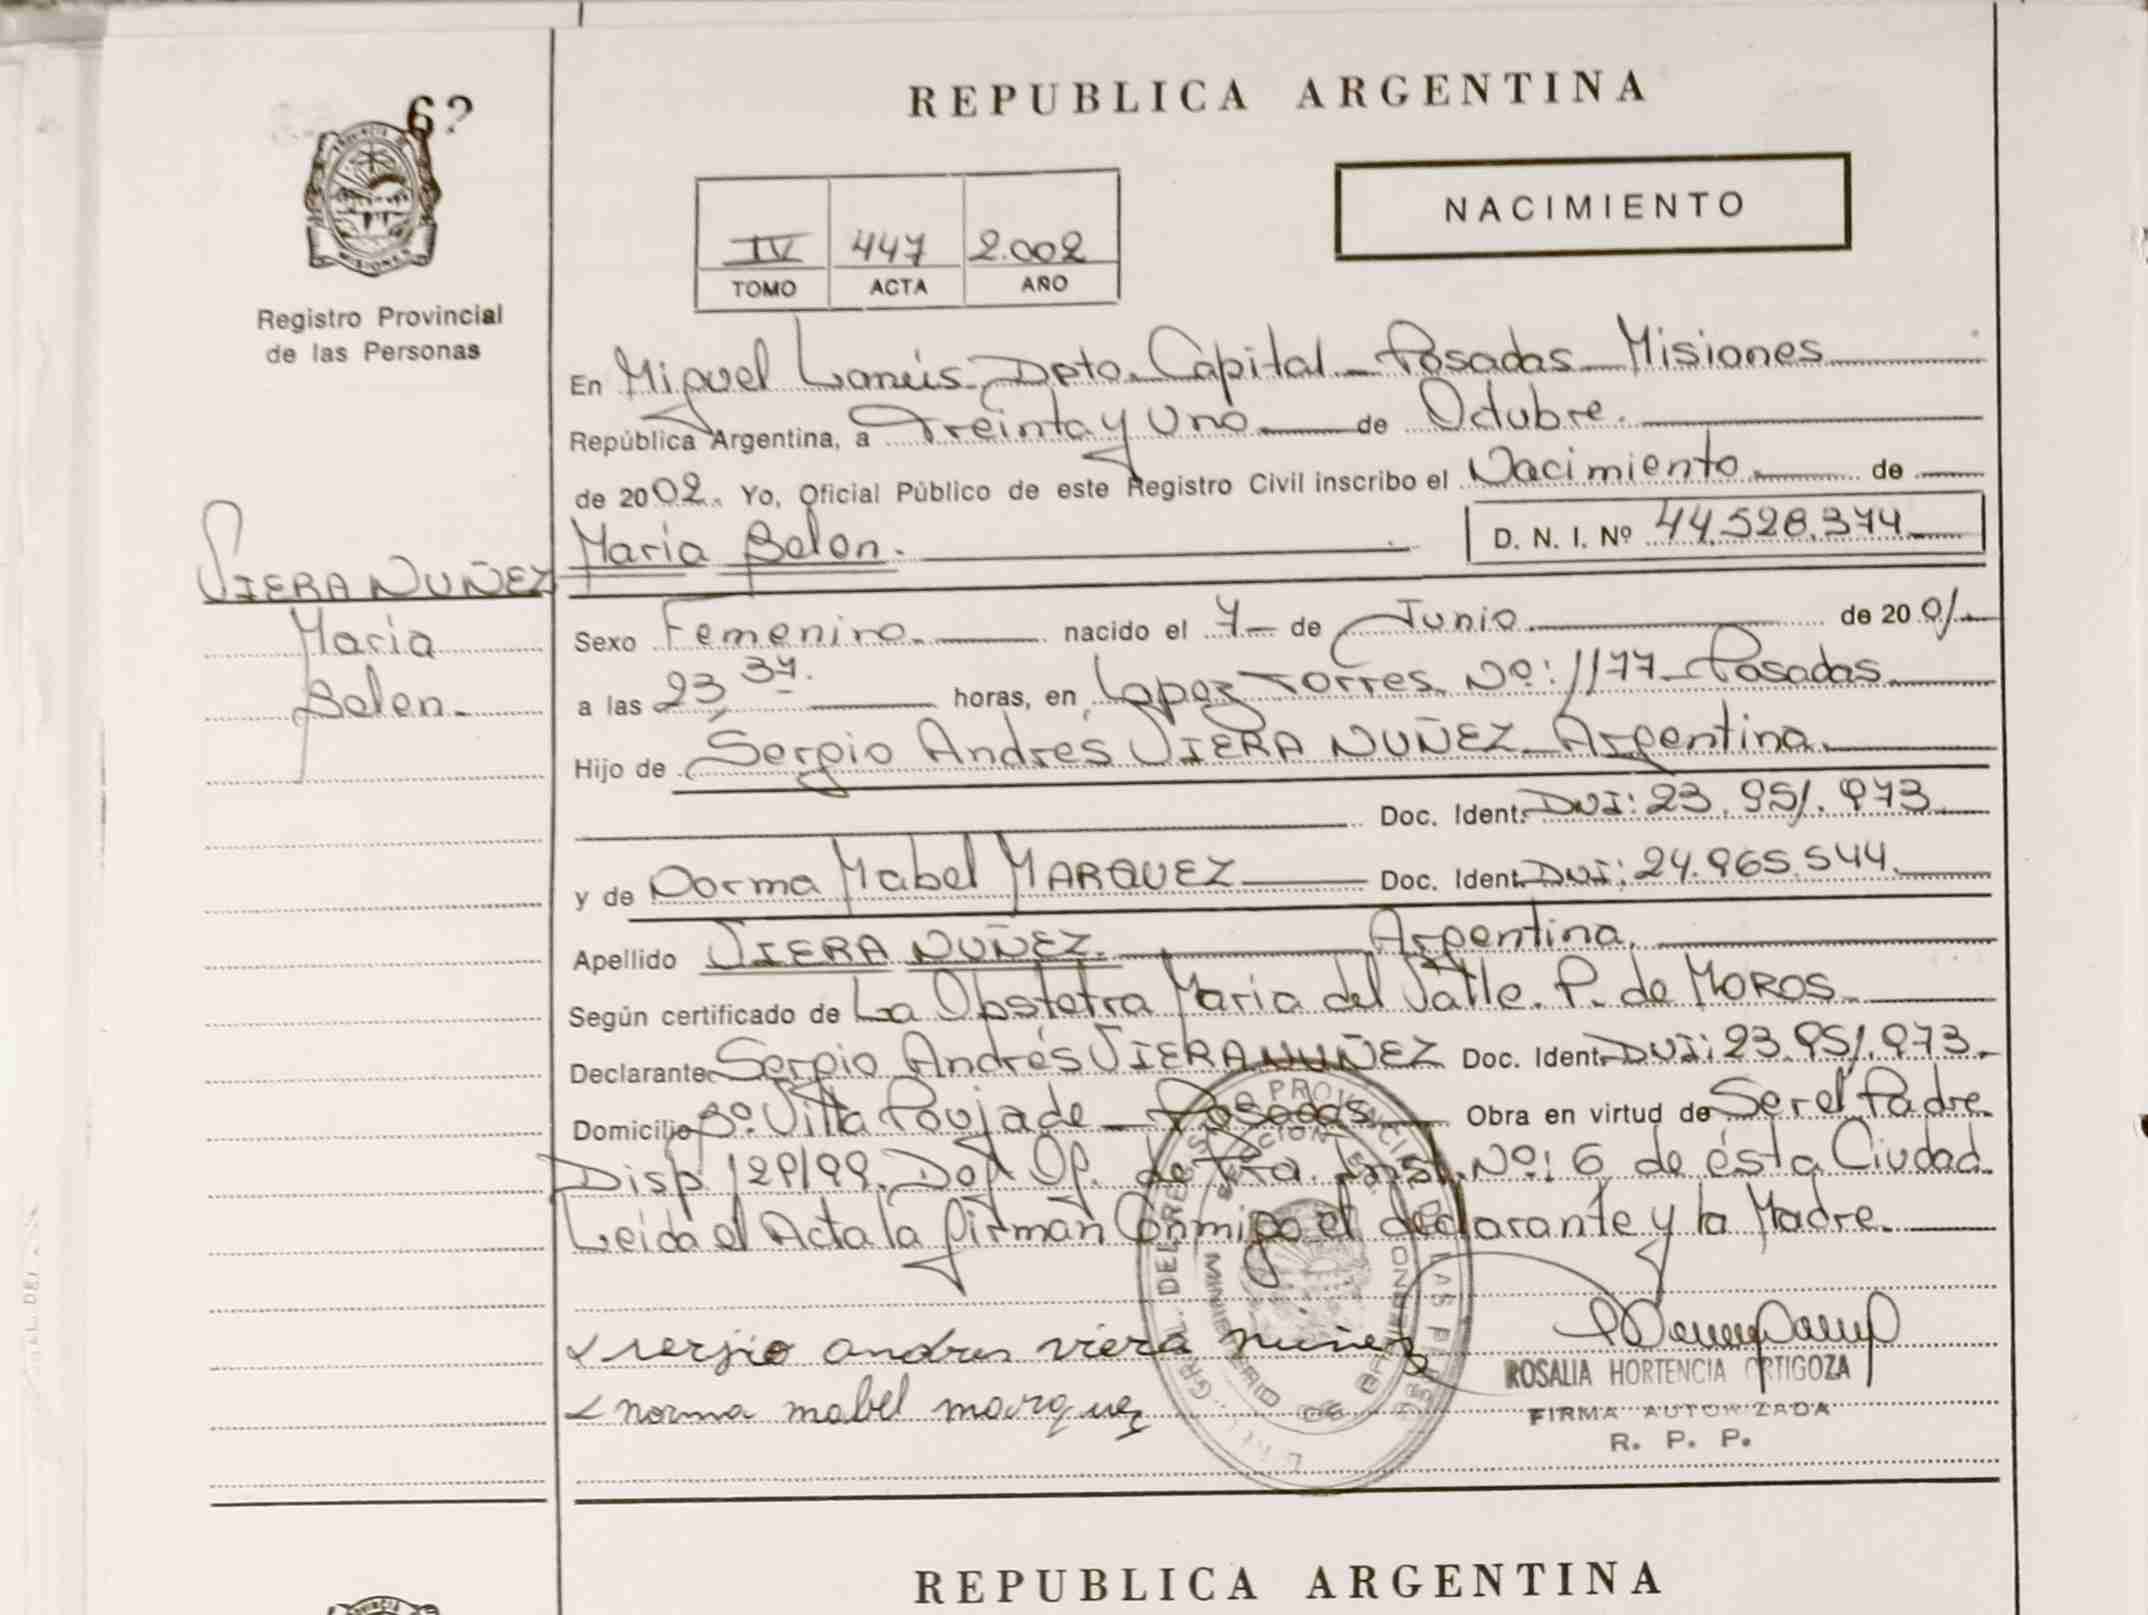 REPUBLICA ARGENTINA
6?
NACIMIENTO
IV 447 2.002
TOMO ACTA AÑO
Registro Provincial
de las Personas
En Miguel Lanús Dpto. Capital - Posadas - Misiones
República Argentina, a Treinta y Uno de Octubre.
de 2002. Yo, Oficial Público de este Registro Civil inscribo el Nacimiento de
Maria Belen. D. N. I. Nº 44.528.374
VIERA NUÑEZ
Maria
Belen.
Sexo Femenino nacido el 7 de Junio de 2001
a las 23 37. horas, en Lopez Torres Nº: 1177 - Posadas
Hijo de Sergio Andres VIERA NUÑEZ - Argentina.
Doc. Ident. DNI: 23.951.973
y de Norma Mabel MARQUEZ Doc. Ident. DNI: 24.965.544.
Apellido VIERA NUÑEZ. Argentina.
Según certificado de La Obstetra Maria del Valle. P. de MOROS
Declarante Sergio Andrés VIERA NUÑEZ Doc. Ident. DNI: 23.951.973.
Domicilio Bº. Villa Poujade - Posadas Obra en virtud de Ser el Padre
Disp. 129/99. Def. Of. de 1ra. Inst. Nº: 6 de ésta Ciudad
Leida el Acta la firman Conmigo el declarante y la Madre.
sergio andres viera nuñez
norma mabel marquez
ROSALIA HORTENCIA ORTIGOZA
FIRMA AUTORIZADA
R. P. P.
REPUBLICA ARGENTINA